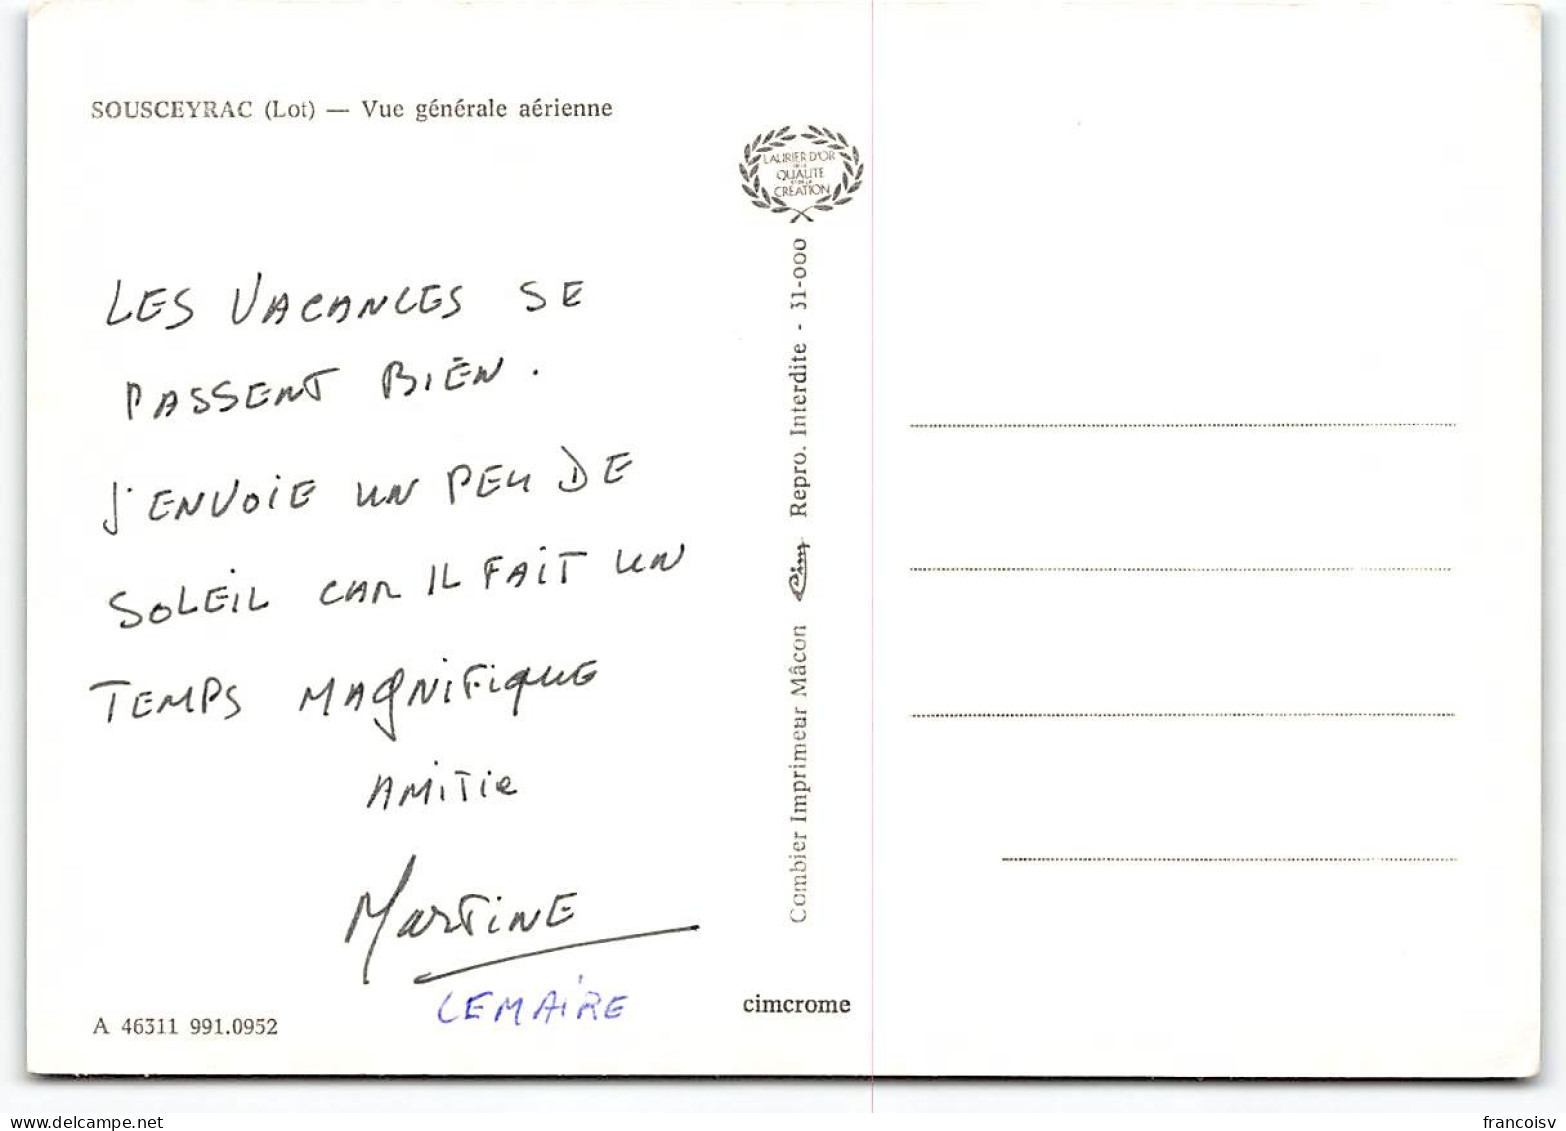 SOUSCEYRAC (Lot) — Vue générale aérienne
LES VACANCES SE
PASSENT BIEN.
J'ENVOIE UN PEU DE
SOLEIL CAR IL FAIT UN
TEMPS MAGNIFIQUE
AMITIE
MARTINE
LEMAIRE
A 46311 991.0952
LAURIER D'OR
DE LA
QUALITE
ET DE LA
CREATION
Combier Imprimeur Mâcon Cim Repro. Interdite - 31-000
cimcrome
www.delcampe.net
francoisv